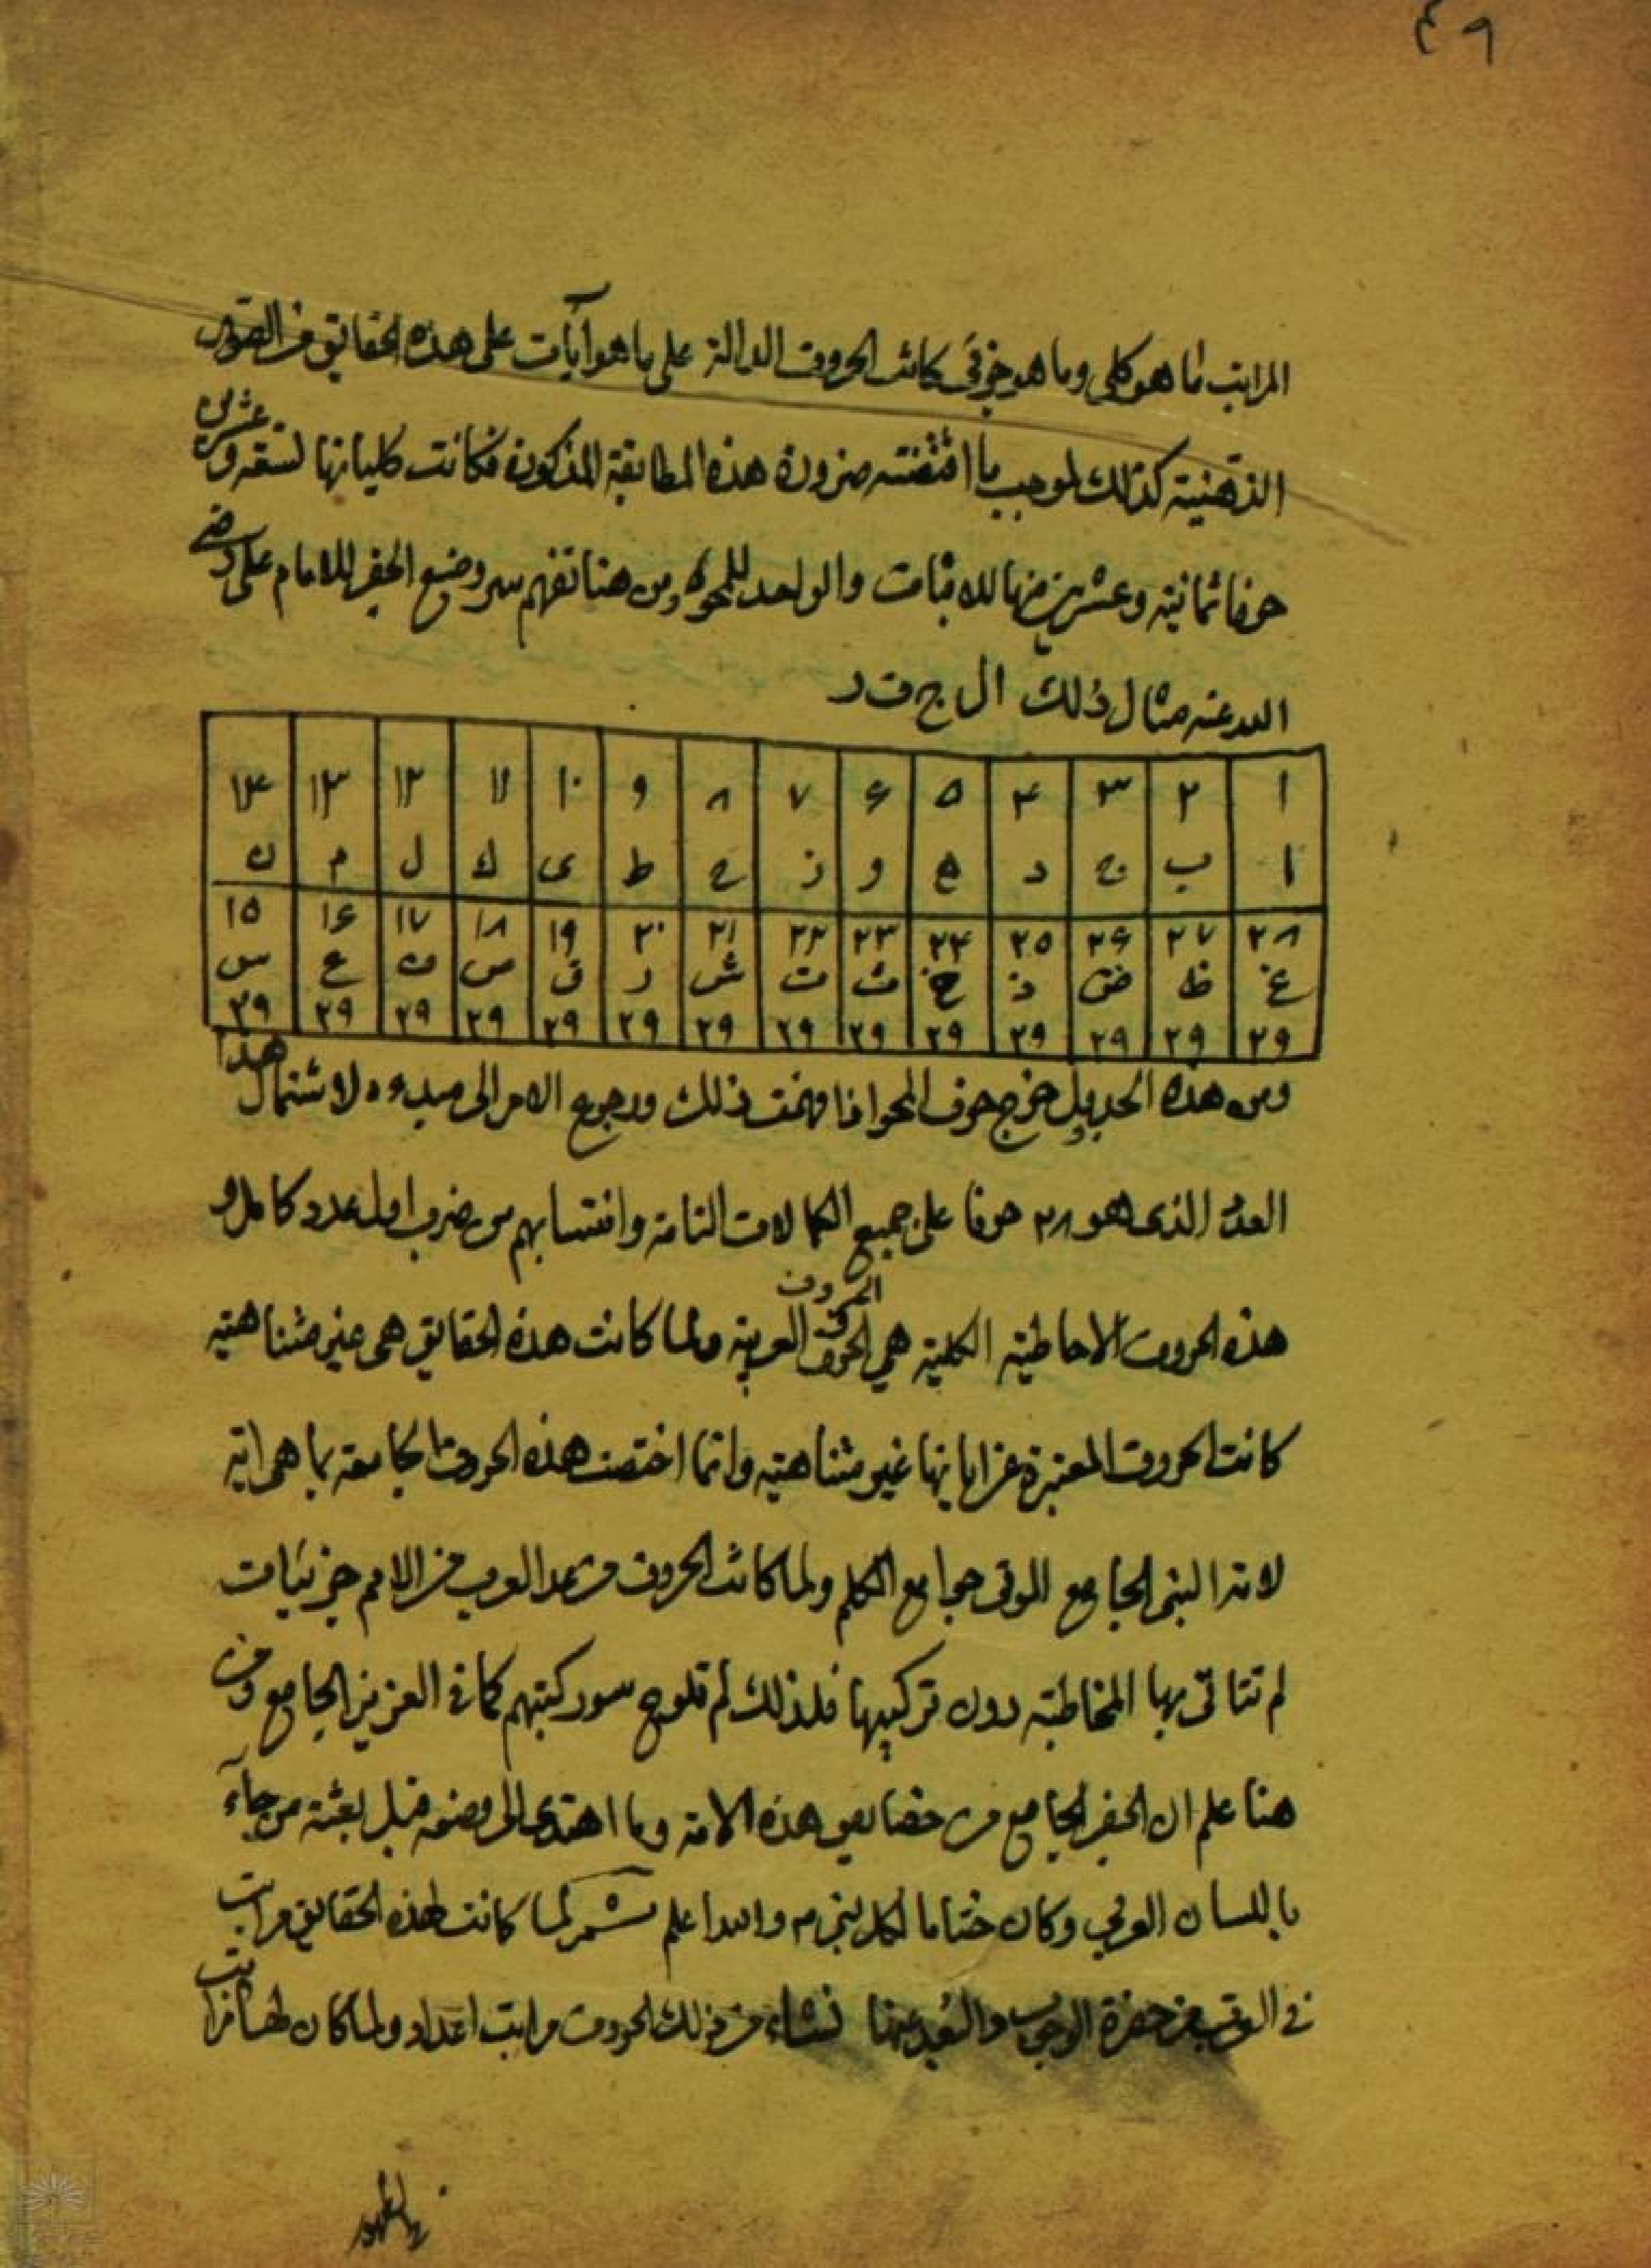 ٤٩
المراتب ما هو كلي وما هو جزئي كانت الحروف الدالة على ما هو آيات على هذه الحقايق من الصور
الذهنية كذلك لموجب ما اقتضته ضرورة هذه المطابقة المذكورة فكانت كلياتها تسعة وعشرين
حرفا ثمانية وعشرين منها للاثبات والواحد للمحو ومن هنا تفهم سر وضع الجفر للامام على رضي
الله عنه مثال ذلك ال ج ف ر
١ ٢ ٣ ۴ ۵ ۶ ٧ ٨ ٩ ١٠ ١١ ١٢ ١٣ ١۴
ا ب ج د ه و ز ح ط ى ك ل م ن
٢٨ ٢٧ ٢۶ ٢۵ ٢۴ ٢٣ ٢٢ ٢١ ٢٠ ١٩ ١٨ ١٧ ١۶ ١۵
غ ظ ض ذ خ ث ت ش ر ق ص ف ع س
٢٩ ٢٩ ٢٩ ٢٩ ٢٩ ٢٩ ٢٩ ٢٩ ٢٩ ٢٩ ٢٩ ٢٩ ٢٩ ٢٩
ومن هذه خرج حرف المحو اذا فهمت ذلك ورجوع الامر الى مبدءه لاشتمال هذا
العدد الذى هو ٢٨ حرفا على جميع الكمالات التامة من ضرب اول عدد كامل و
هذه الحروف الاحاطية الكلية هي الحروف العربية ولما كانت هذه الحقايق هى غير متناهية
الحروف
كانت الحروف المعتبرة غير متناهية وانما اختصت هذه الحروف الجامعة بما هى
لانه النبى الجامع الموتى جوامع الكلم ولما كانت الحروف من عدا العرب من الامم جزئيات
لم تتاتى بها المخاطبة دون تركيبها فلذلك لم سور كتبهم كما فى العزيز الجامع ومن
هنا علم ان الجفر الجامع من خصايص هذه الامة وما اهتدى الى وضعه قبل بعثة من جاء
باللسان العربي وكان ختاما لكل نبى م والله اعلم ثم لما كانت لهذه الحقايق مراتب
فى القرب من حضرة الوجوب والبعد عنها نشاء من ذلك الحروف مراتب اعداد ولما كان لها مراتب